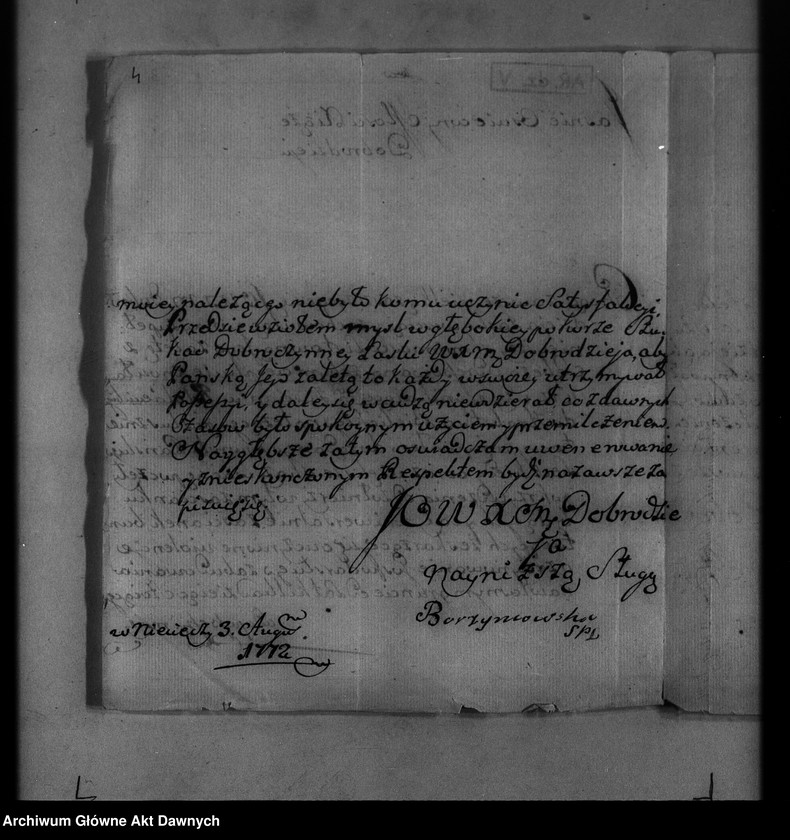 4
AR dz. V
moiey należącego niebyło komu uczynic Satysfakcyi,
Przedsiewziołem mysl w głębokiey pokorze Szu-
kać Dobroczynney Łaski WXM Dobrodzieja, aby
Pańską Jego zaletą to każdy wswoiey utrzymywał
y daley się wcudzą niewdzierał co zdawnych
Czasow było spokoynym użyciem y przemilczeniem.
Nayglębsze zatym oswiadczam uwenerowanie
y znieskonczonym Respektem bydź nazawsze za
JOWXCMci Dobrodzie
ja
Nayniższą Sługą
Borzymowska
w Niewierz 3. Augus
1772
Archiwum Główne Akt Dawnych